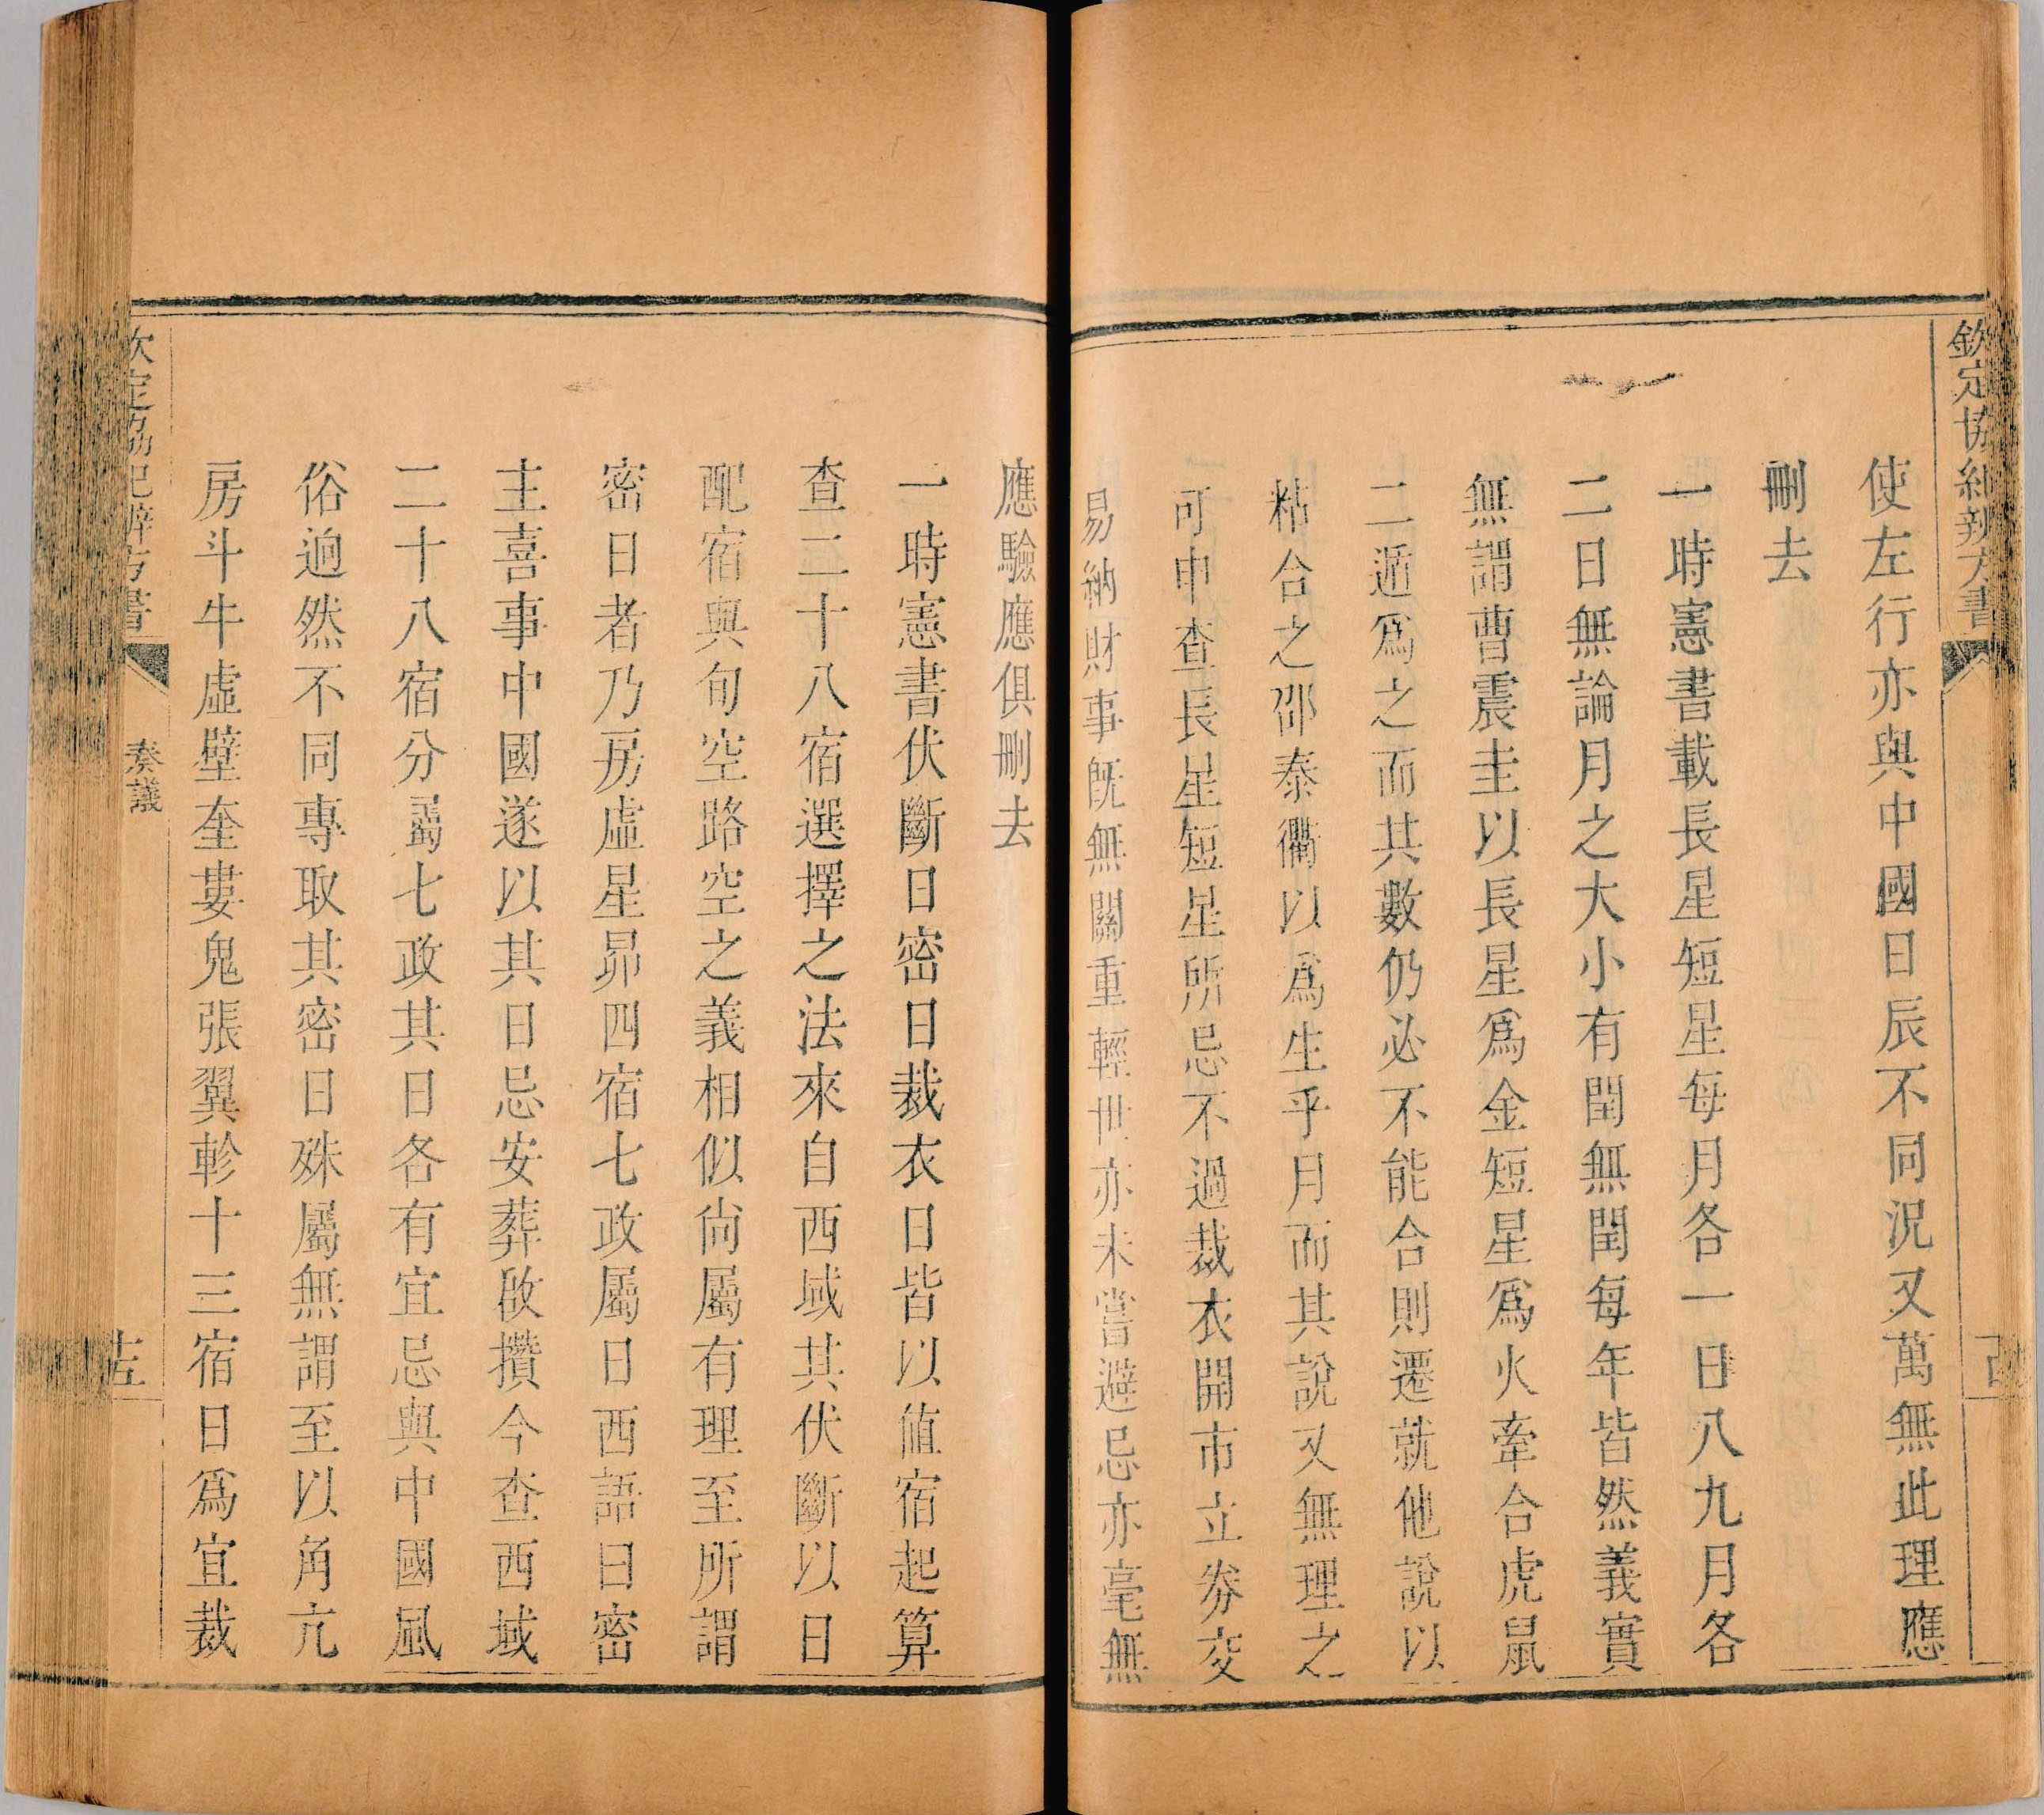 欽定協紀辨方書
使左行亦與中國日辰不同況又萬無此理應
刪去
一時憲書載長星短星每月各一日八九月各
二日無論月之大小有閏無閏每年皆然義實
無謂曹震圭以長星爲金短星爲火牽合虎鼠
二遁爲之而其數仍必不能合則遷就他說以
粘合之邵泰衢以爲生乎月而其說又無理之
可申查長星短星所忌不過裁衣開市立券交
易納財事既無關重輕世亦未嘗避忌亦毫無
應驗應俱刪去
一時憲書伏斷日密日裁衣日皆以值宿起算
查二十八宿選擇之法來自西域其伏斷以日
配宿與旬空路空之義相似尙屬有理至所謂
密日者乃房虛星昴四宿七政屬日西語曰密
主喜事中國遂以其日忌安葬啟攢今查西域
二十八宿分屬七政其日各有宜忌與中國風
俗逈然不同專取其密日殊屬無謂至以角亢
房斗牛虛壁奎婁鬼張翼軫十三宿日爲宜裁
欽定協紀辨方書
奏議